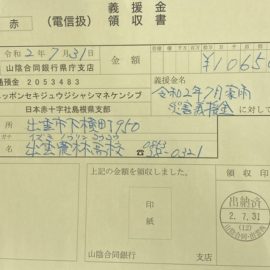 赤
(電信扱)
義援金
領収書
令和2年7月31日
金額
¥10650
山陰合同銀行県庁支店
通預金 2053483
ニッポンセキジュウジシャシマネケンシブ
日本赤十字社島根県支部
義援金名
令和2年7月豪雨
災害義援金に対して
出雲市下横町950
出雲農林高校
0853
0321
上記の金額を領収しました。
領収印
印
紙
出納済
2.7.31
(12)
山陰合同銀行
支店